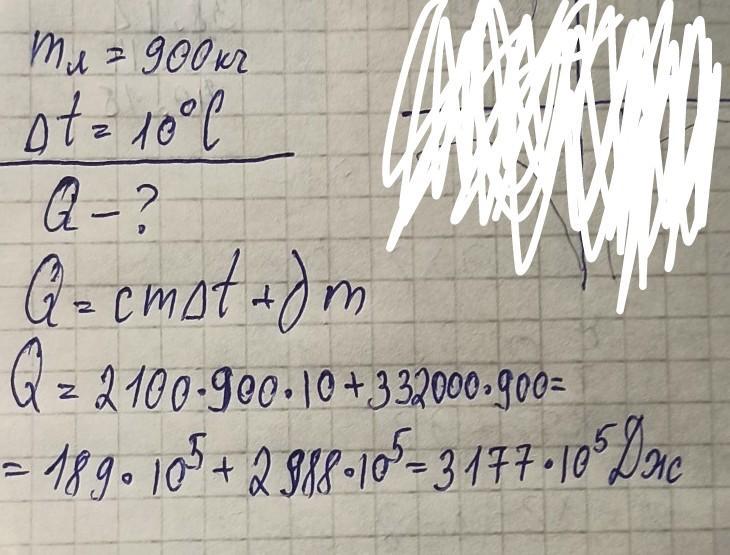 mл = 900кг
Δt = 10°C
Q - ?
Q = cmΔt + λm
Q = 2100·900·10 + 332000·900=
= 189·10⁵ + 2988·10⁵ = 3177·10⁵ Дж